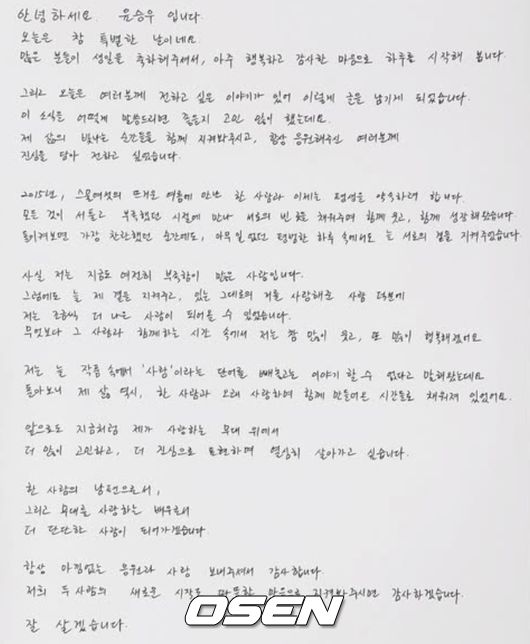 안녕하세요. 윤승우 입니다.
오늘은 참 특별한 날이네요.
많은 분들이 생일을 축하해주셔서, 아주 행복하고 감사한 마음으로 하루를 시작해 봅니다.
그리고 오늘은 여러분께 전하고 싶은 이야기가 있어 이렇게 글을 남기게 되었습니다.
이 소식을 어떻게 말씀드리면 좋을지 고민 많이 했는데요.
제 삶의 빛나는 순간들을 함께 지켜봐주시고, 항상 응원해주신 여러분께
진심을 담아 전하고 싶었습니다.
2015년, 스물여섯의 뜨거운 여름에 만난 한 사람과 이제는 평생을 약속하려 합니다.
모든 것이 서툴고 부족했던 시절에 만나 서로의 빈 곳을 채워주며 함께 웃고, 함께 성장해왔습니다.
돌이켜보면 가장 찬란했던 순간에도, 아무 일 없던 평범한 하루 속에서도 늘 서로의 곁을 지켜주었습니다.
사실 저는 지금도 여전히 부족함이 많은 사람입니다.
그럼에도 늘 제 곁을 지켜주고, 있는 그대로의 저를 사랑해준 사람 덕분에
저는 조금씩 더 나은 사람이 되어올 수 있었습니다.
무엇보다 그 사람과 함께하는 시간 속에서 저는 참 많이 웃고, 또 많이 행복해졌어요
저는 늘 작품 속에서 '사랑'이라는 단어를 빼놓고는 이야기 할 수 없다고 말해왔는데요
돌아보니 제 삶 역시, 한 사람과 오래 사랑하며 함께 만들어온 시간들로 채워져 있었어요.
앞으로도 지금처럼 제가 사랑하는 무대 위에서
더 많이 고민하고, 더 진심으로 표현하며 열심히 살아가고 싶습니다.
한 사람의 남편으로서,
그리고 무대를 사랑하는 배우로서
더 단단한 사람이 되어가겠습니다.
항상 아낌없는 응원과 사랑 보내주셔서 감사합니다.
저희 두사람의 새로운 시작도 따뜻한 마음으로 지켜봐주시면 감사하겠습니다.
잘 살겠습니다.
OSEN